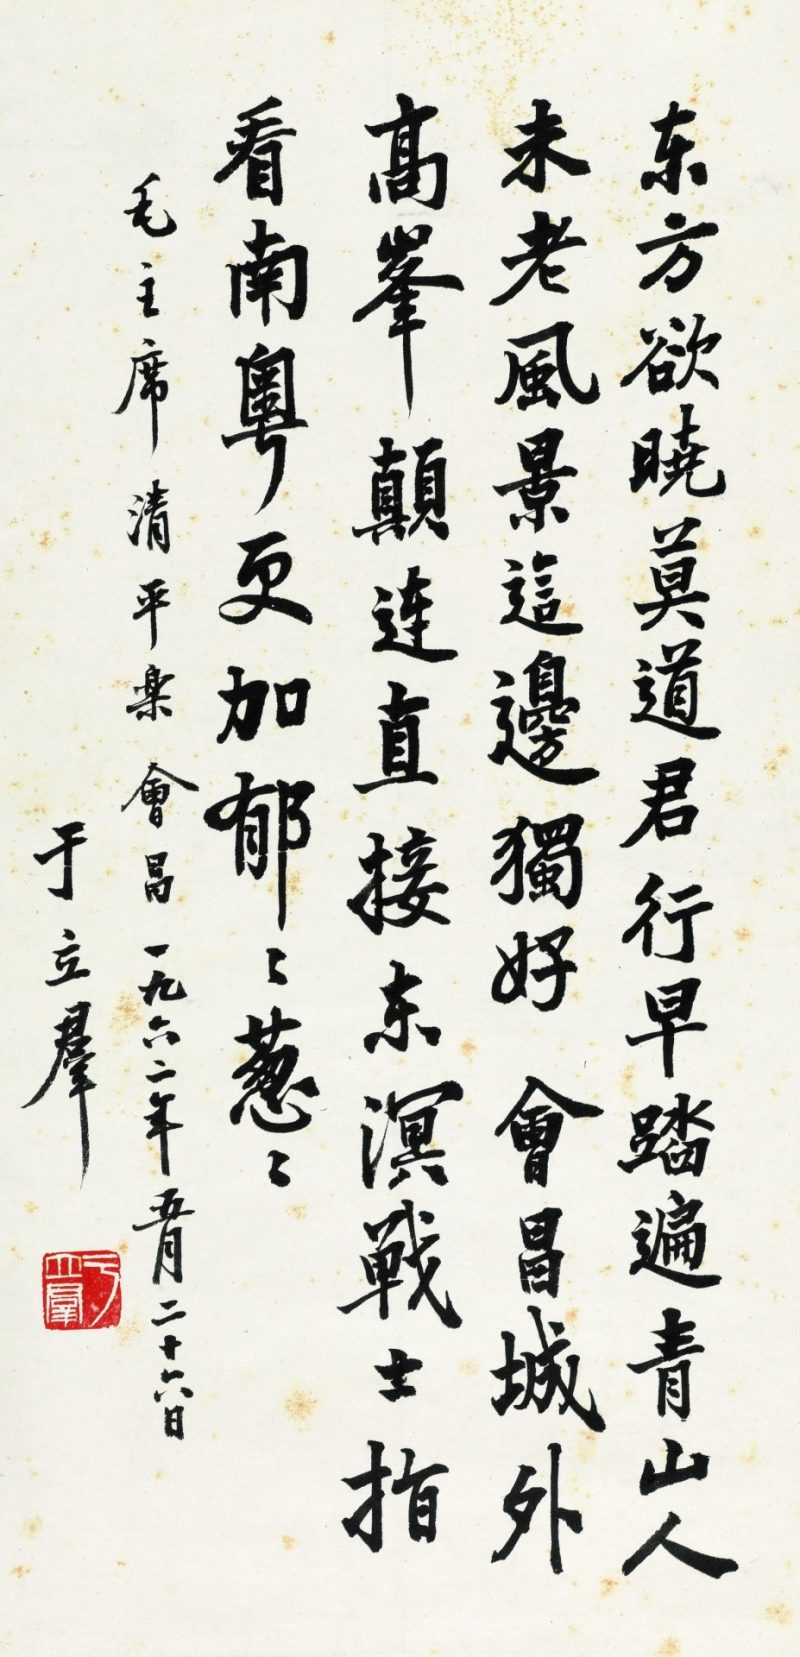 东方欲晓莫道君行早踏遍青山人
未老風景這邊獨好 會昌城外
高峯顛連直接东溟戰士指
看南粵更加郁〻葱〻
毛主席清平楽 會昌 一九六二年五月二十六日
于立羣
于立羣